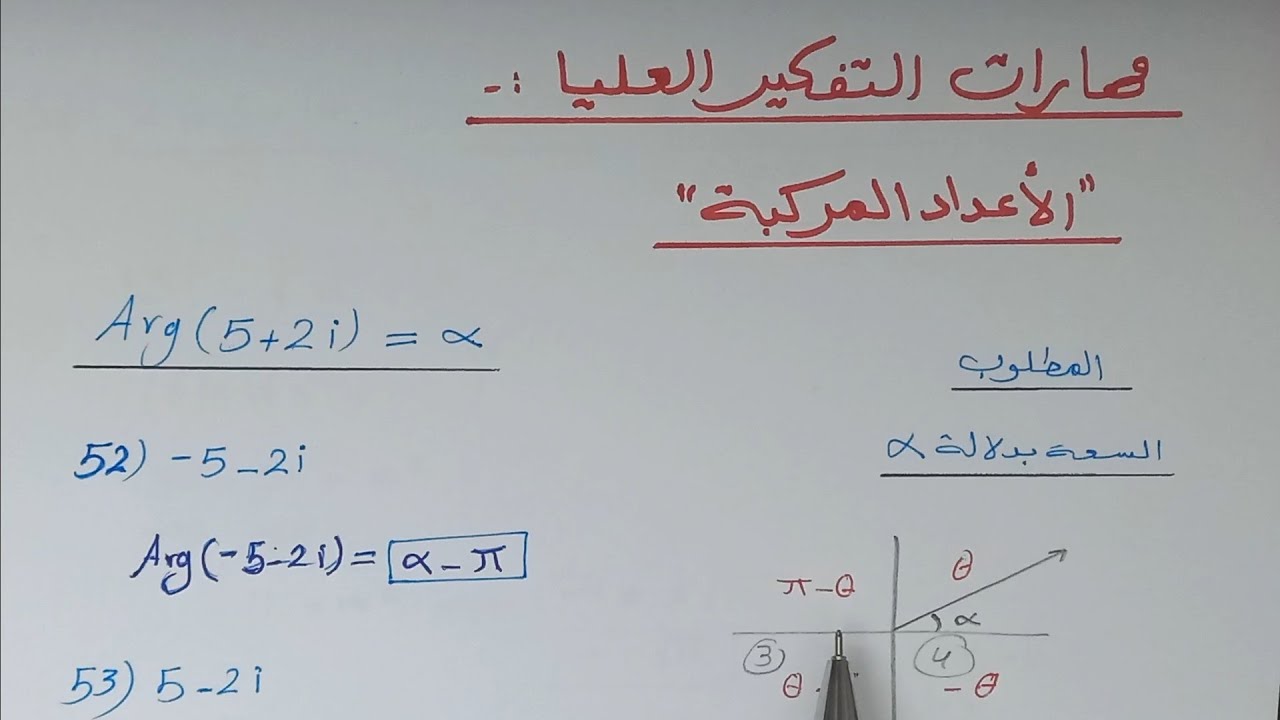 مهارات التفكير العليا :-
"الأعداد المركبة"
Arg(5+2i) = α
المطلوب
52) -5-2i
السعة بدلالة α
Arg(-5-2i) = α - π
π-θ
θ
α
3
4
θ
-θ
53) 5-2i